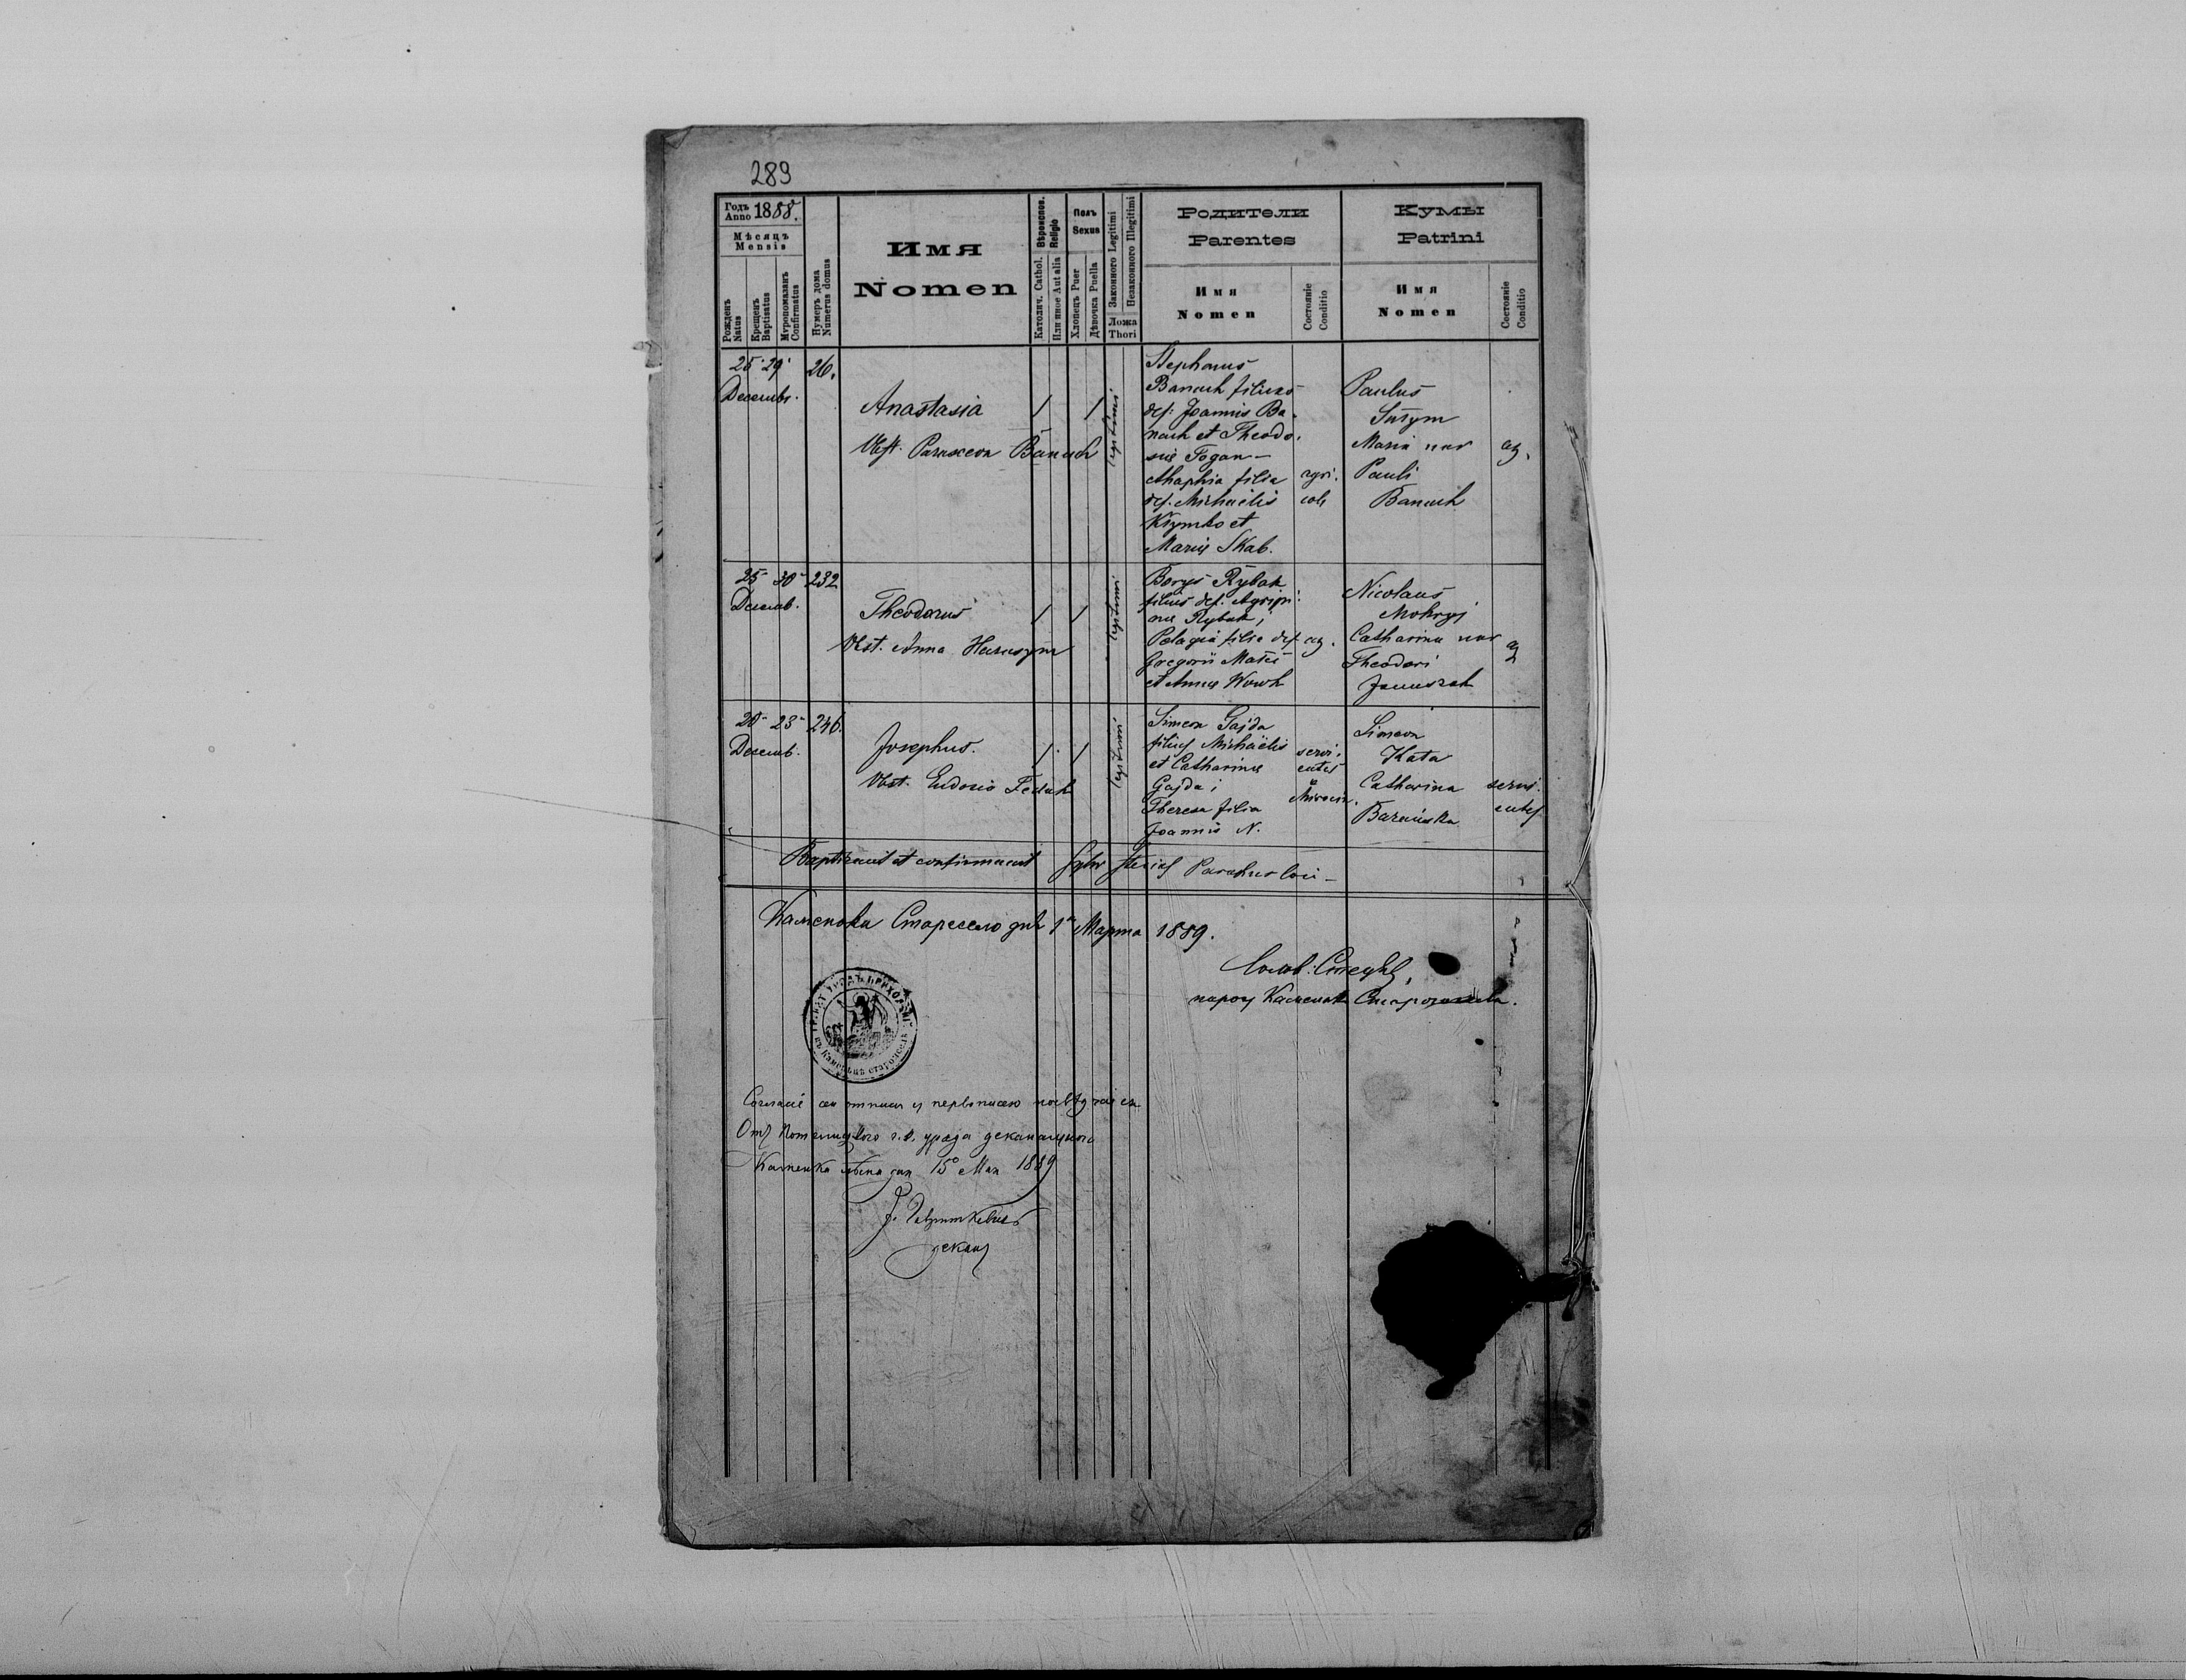 289
Годъ Anno 1888.
Мѣсяцъ
Mensis
Рожденъ
Natus
Крещенъ
Baptisatus
Мѵропомазанъ
Confirmatus
Нумеръ дома
Numerus domus
Имя
Nomen
Вѣроиспов.
Religio
Католич. Cathol.
Или иное Aut alia
Полъ
Sexus
Хлопецъ Puer
Дѣвочка Puella
Законного Legitimi
Незаконного Illegitimi
Ложа
Thori
Родители
Parentes
Имя
Nomen
Состояніе
Conditio
Кумы
Patrini
Имя
Nomen
Состояніе
Conditio
25 29 26.
Decembr.
Anastasia
Obst. Parascevia Banach
/ /
legitimi
Stephanus
Banach filius
def. Joannis Ba-
nach et Theodo-
siæ Fogan -
Ahaphia filia
def. Michaëlis
Klymko et
Mariæ Skab.
agri-
colæ
Paulus
Maria uxor
Pauli
Banach
ag.
25 30 232
Decemb.
Theodorus
Obst. Anna Harasym
/ /
legitimi
Borys Rybak
filius def. Agripi-
næ Rybak;
Pelagia filia def.
Gregorii
et Annæ Wowk
ag.
Nicolaus
Mokryj
Catharina uxor
Theodori
Januszak
ag
20 23 246.
Decemb.
Josephus.
Obst. Eudoxia Fedak
/ /
legitimi
Simeon Gajda
filius Michaëlis
et Catharinæ
Gajda;
Theresa filia
Joannis N.
servi-
entes
Simeon
Kata
Catharina
Barańska
servi-
entes
Baptisavit et confirmavit Parochus loci -
Каменка Староесело дня 1 Марта 1889.
Солов. Стецѣв,
парох Каменки
Согласіе сей отписи с первописею посвѣдчаеся
От г.к. уряда деканального
Каменка дня 15 Мая 1889
декан